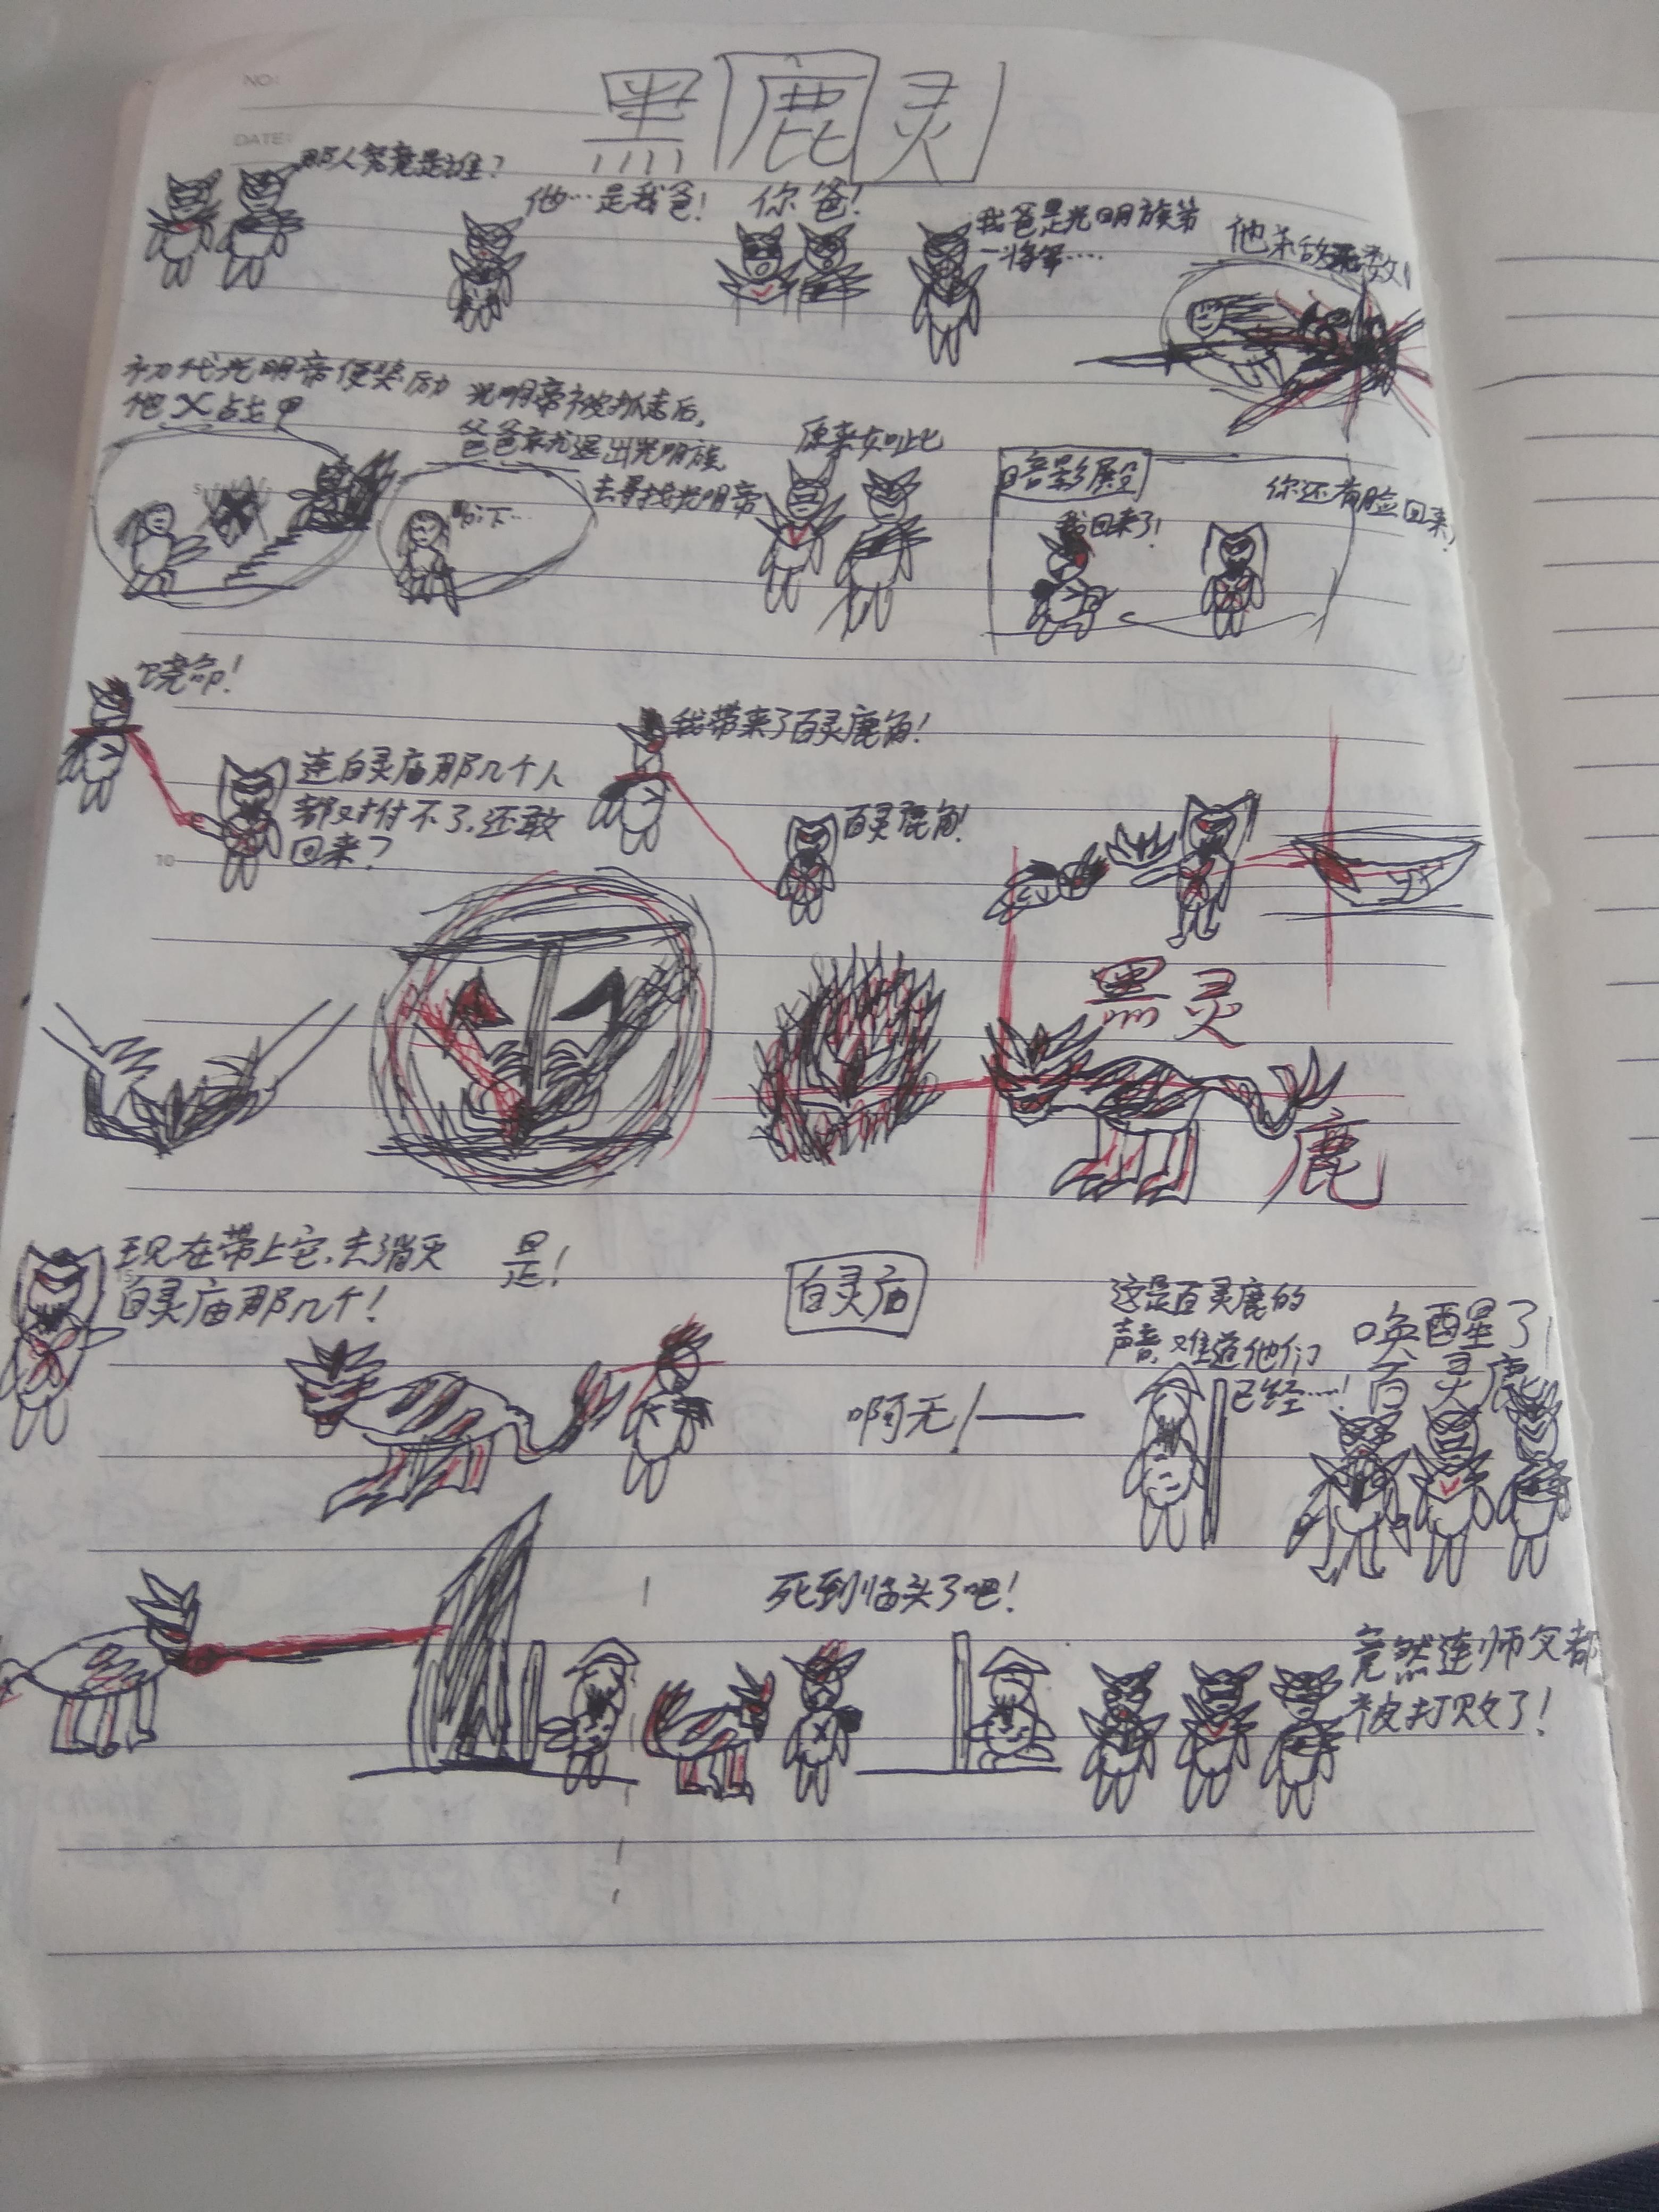 NO:
DATE:
黑鹿灵
那人究竟是谁？
他…是我爸！
你爸！
我爸是光明族第
一将军……
他杀敌无数！
初代光明帝便奖励
他X战甲
光明帝被抓走后，
爸爸就退出光明族
去寻找光明帝
陛下…
原来如此
暗影殿
我回来了！
你还有脸回来！
饶命！
连白灵庙那几个人
都对付不了，还敢
回来？
我带来了百灵鹿角！
百灵鹿角！
10
黑灵
鹿
现在带上它，去消灭
白灵庙那几个！
是！
白灵庙
啊无！——
这是百灵鹿的
声音，难道他们
已经……！
唤醒了
百灵鹿
死到临头了吧！
竟然连师父都
被打败了！